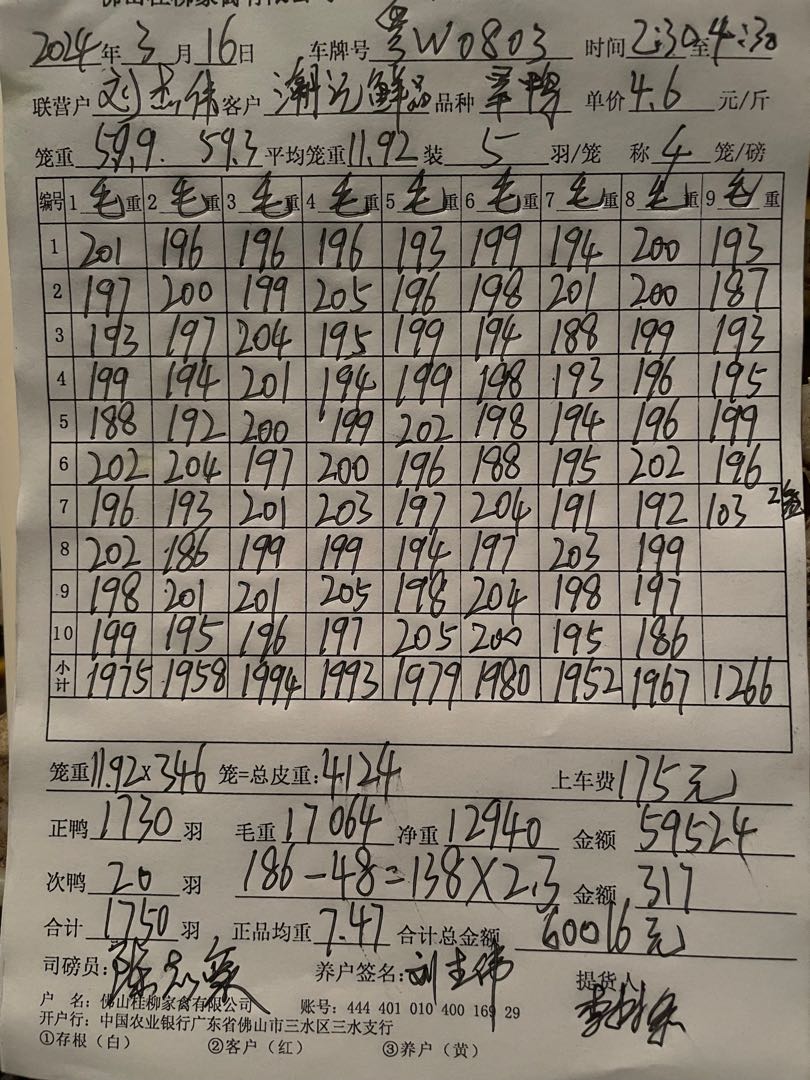 2024年3月16日 车牌号 粤W0803 时间2:30至4:30
联营户 刘志伟 客户 潮记鲜品 品种 单价4.6元/斤
笼重 59.9. 59.3 平均笼重11.92 装 5 羽/笼 称 4 笼/磅
编号 1 毛重 2 毛重 3 毛重 4 毛重 5 毛重 6 毛重 7 毛重 8 毛重 9 毛重
1 201 196 196 196 193 199 194 200 193
2 197 200 199 205 196 198 201 200 187
3 193 197 204 195 199 194 188 199 193
4 199 194 201 194 199 198 193 196 195
5 188 192 200 199 202 198 194 196 199
6 202 204 197 200 196 188 195 202 196
7 196 193 201 203 197 204 191 192 103 2笼
8 202 186 199 199 194 197 203 199
9 198 201 201 205 198 204 198 197
10 199 195 196 197 205 200 195 186
小计 1975 1958 1994 1993 1979 1980 1952 1967 1266
笼重11.92×346 笼=总皮重:4124 上车费175元
正鸭1730羽 毛重17064 净重12940 金额59524
次鸭20羽 186-48=138×2.3 金额317
合计1750羽 正品均重7.47 合计总金额60016元
司磅员: 养户签名: 提货人
户 名:佛山桂柳家禽有限公司 账号:444 401 010 400 169 29
开户行:中国农业银行广东省佛山市三水区三水支行
①存根(白) ②客户(红) ③养户(黄)